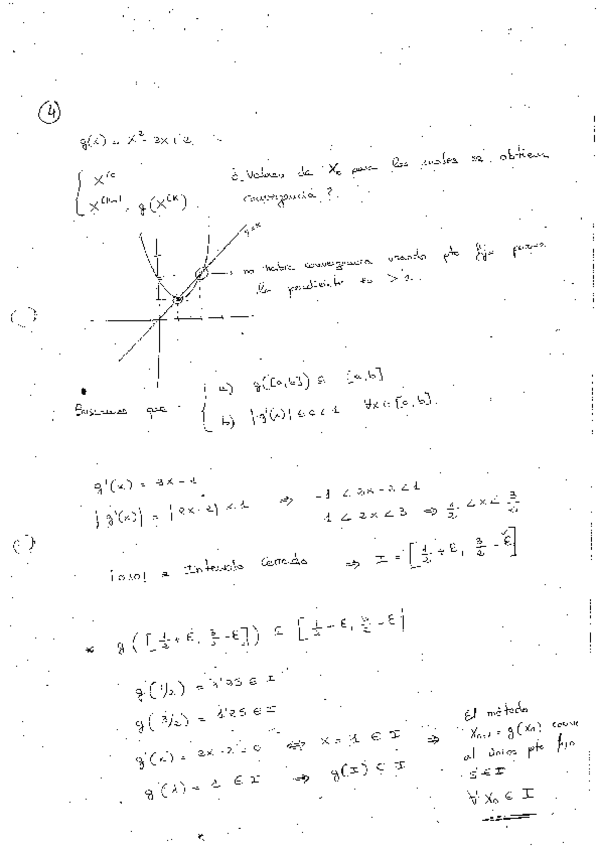 4
g(x) = x² - 2x + 2
¿Valores de X₀ para los cuales se obtiene
convergencia?
X^(k+1) = g(X^(k))
y=x
no habría convergencia usando pto fijo porque
la pendiente es > 1.
Buscamos que
a) g([a,b]) ⊆ [a,b]
b) |g'(x)| ≤ c < 1 ∀x ∈ [a,b].
g'(x) = 2x - 2
|g'(x)| = |2x - 2| < 1 ⇒ -1 < 2x - 2 < 1
1 < 2x < 3 ⇒ 1/2 < x < 3/2
¡ojo! Intervalo cerrado ⇒ I = [1/2 + ε, 3/2 - ε]
* g([1/2 + ε, 3/2 - ε]) ⊆ [1/2 + ε, 3/2 - ε]
g(1/2) = 1'25 ∈ I
g(3/2) = 1'25 ∈ I
g'(x) = 2x - 2 = 0 ⇔ x = 1 ∈ I ⇒
g(1) = 1 ∈ I ⇒ g(I) ⊂ I
El método
Xn+1 = g(Xn) conve
al único pto fijo
s ∈ I
∀ X₀ ∈ I